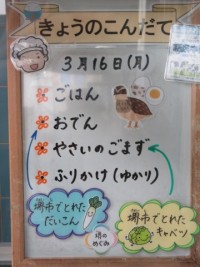 きょうのこんだて
3月16日(月)
ごはん
おでん
やさいのごまず
ふりかけ(ゆかり)
堺市でとれた
だいこん
堺の
めぐみ
堺市でとれた
キャベツ